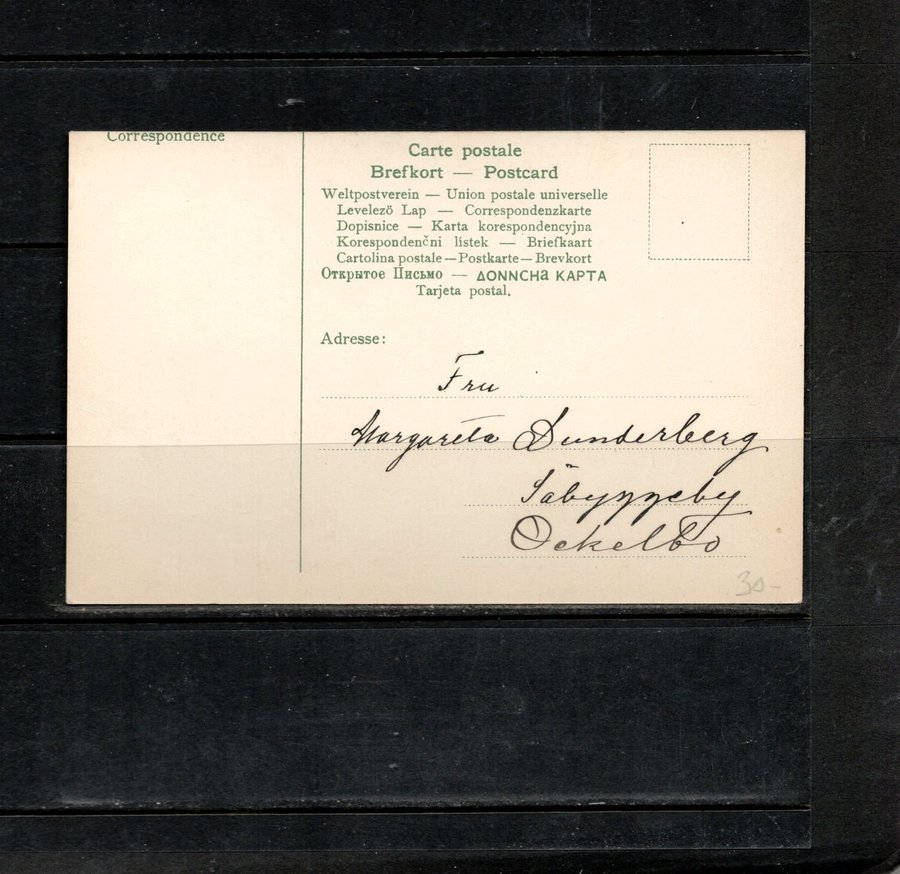 Correspondence
Carte postale
Brefkort — Postcard
Weltpostverein — Union postale universelle
Levelezö Lap — Correspondenzkarte
Dopisnice — Karta korespondencyjna
Korespondenčni lístek — Briefkaart
Cartolina postale — Postkarte — Brevkort
Открытое Письмо — ΔONNCHa KAPTA
Tarjeta postal.
Adresse:
Fru
Margareta Dunderberg
Säbyggeby
Ockelbo
30-